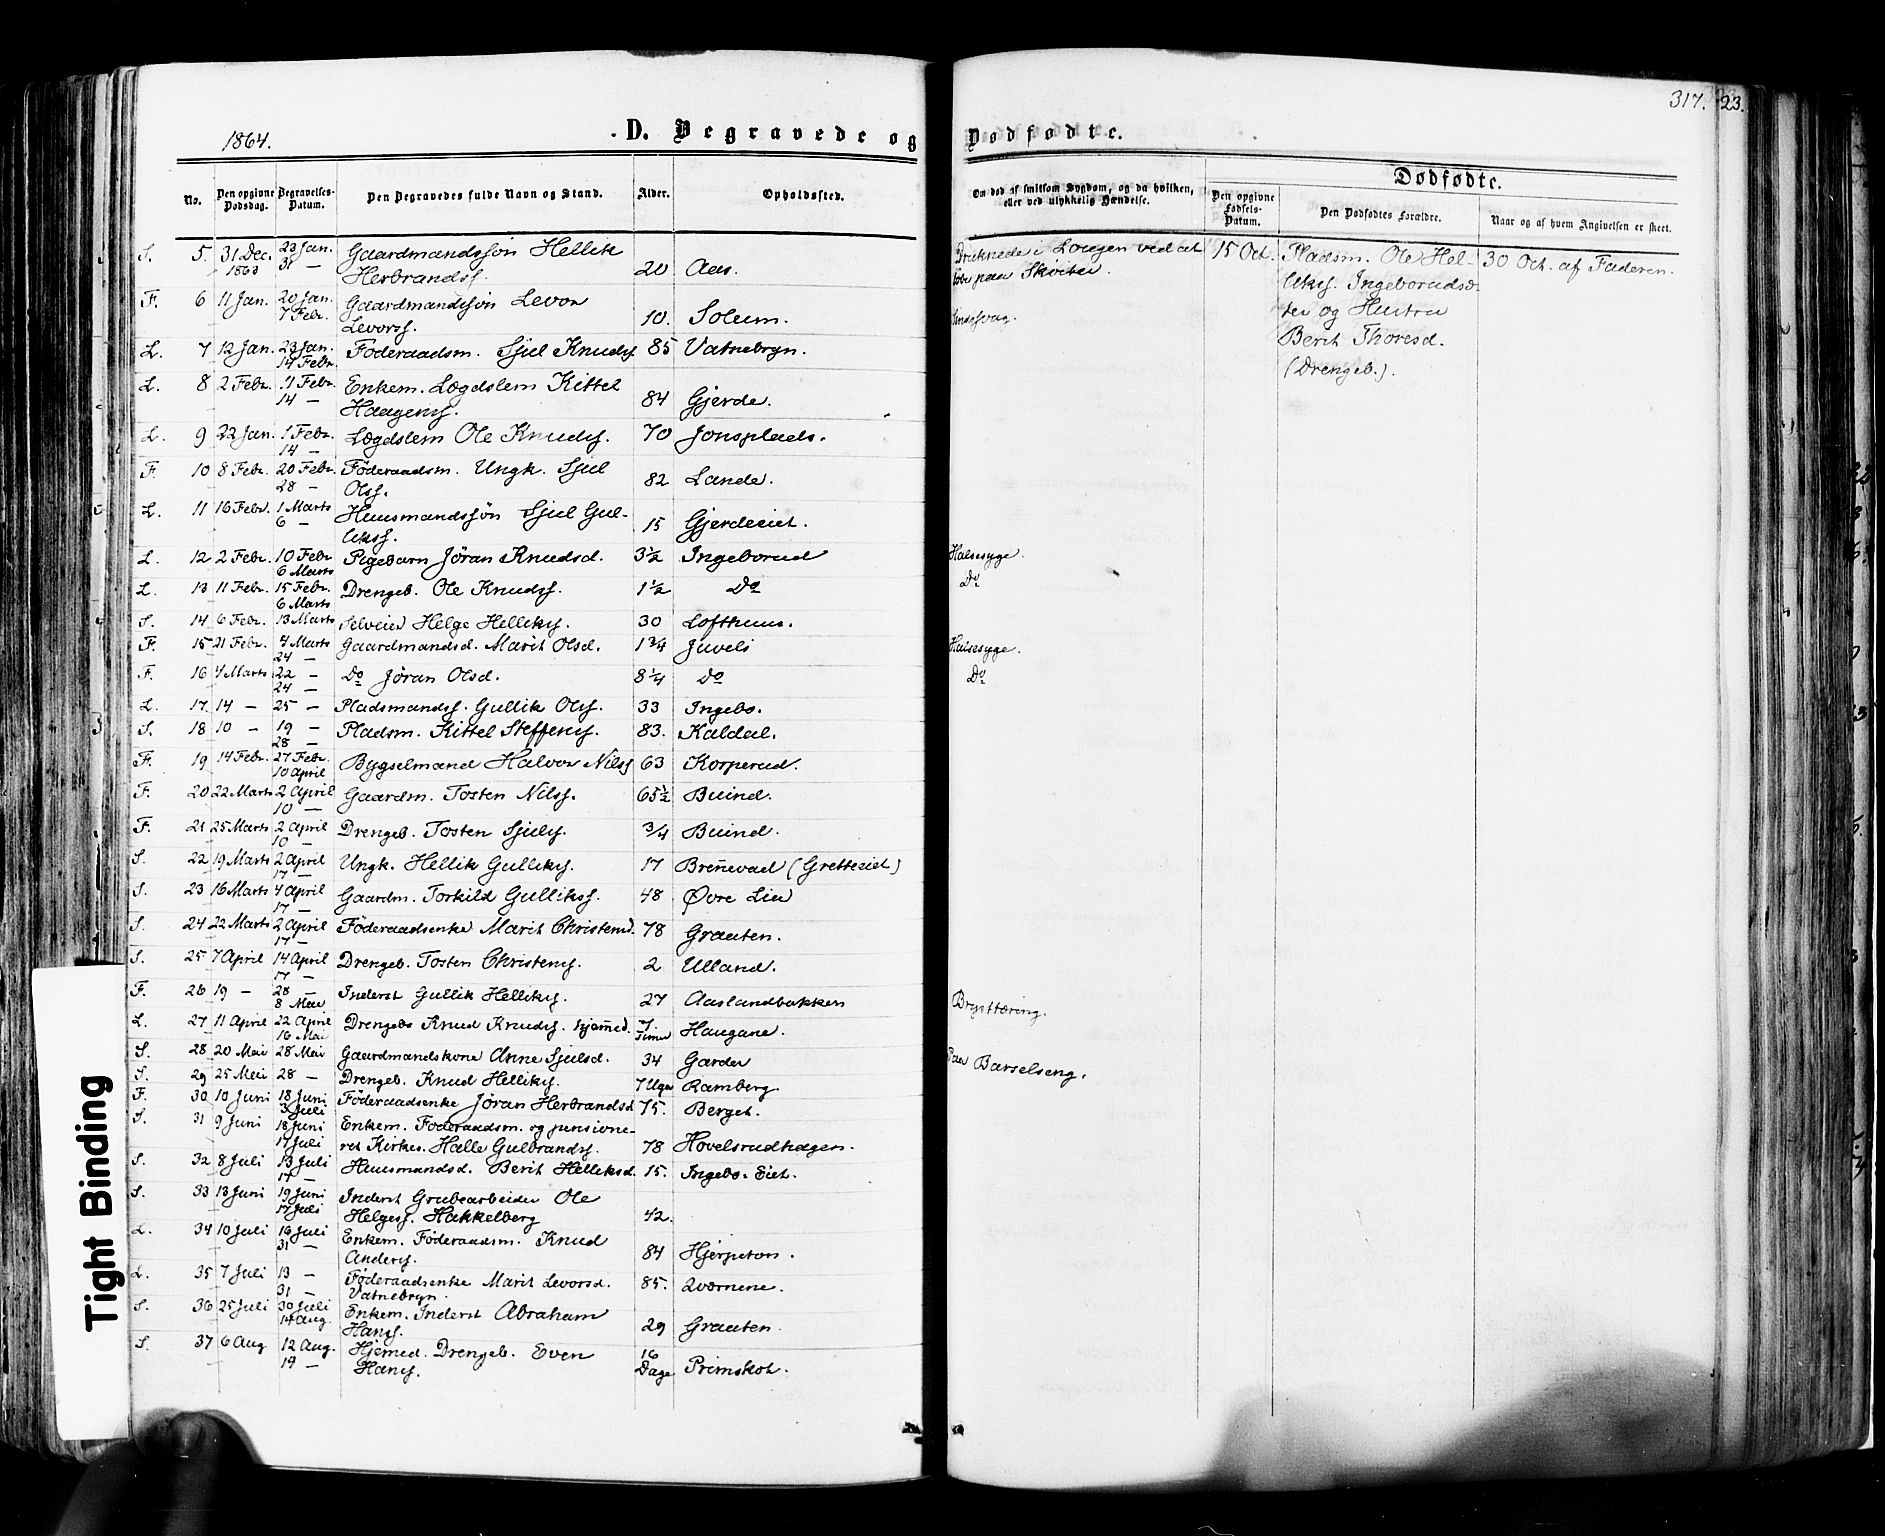 1864.
D. Begravede og
Dødfødte.
317. 23.
No. Den opgivne Dødsdag. Begravelses-Datum. Den Begravedes fulde Navn og Stand. Alder. Opholdssted.
Om død af smitsom Sygdom, og da hvilken, eller ved ulykkelig Hændelse.
Dødfødte.
Den opgivne Fødsels-Datum. Den Dødfødtes Forældre. Naar og af hvem Angivelsen er skeet.
S. 5. 31 Dec. 23 Jan. Gaardmandssøn Hellik
1863 31 — Herbrandss. 20 Aas.
F. 6 11 Jan. 20 Jan. Gaardmandssøn Levor
7 Febr. Levorss. 10. Soleim.
L. 7 12 Jan. 23 Jan. Føderaadsm. Sjul Knudss. 85 Vatnebryn.
14 Febr.
L. 8 2 Febr. 11 Febr. Enkem. Lægdslem Kittel
14 — Haagenss. 84 Gjerde.
L. 9 22 Jan. 1 Febr. Lægdslem Ole Knudss. 70 Jonsplads.
14 —
F. 10 8 Febr. 20 Febr. Føderaadsm. Ungk. Sjul
28 — Olss. 82 Lande.
L. 11 16 Febr. 1 Marts Huusmandssøn Sjul Gul-
6 — likss. 15 Gjerdeeiet.
L. 12 2 Febr. 10 Febr. Pigebarn Jøran Knudsd. 3½ Ingeborud
6 Marts
L. 13 11 Febr. 15 Febr. Drengeb. Ole Knudss. 1½ Do
6 Marts
S. 14 6 Febr. 13 Marts Selveier Helge Hellikss. 30 Lofthuus.
F. 15 21 Febr. 4 Marts Gaardmandsd. Marit Olsd. 1¾ Juveli
24 —
F. 16 4 Marts 22 — Do Jøran Olsd. 8¼ Do
24 —
L. 17. 14 — 25 — Pladsmandss. Gullik Olss. 33 Ingebo.
S. 18 10 — 19 — Pladsm. Kittel Steffenss. 83. Kaldal.
28 —
F. 19 14 Febr. 27 Febr. Bygselmand Halvor Nilss 63 Korperud.
10 April
F. 20 22 Marts 2 April Gaardm. Tosten Nilss. 65½ Buind.
10 —
F. 21 25 Marts 2 April Drengeb. Tosten Sjulss. ¾ Buind.
10 —
S. 22 19 Marts 2 April Ungk. Hellik Gullikss. 17 Brenevad (Gretteeiet)
17 —
S. 23 16 Marts 4 April Gaardm. Torkild Gullikss. 48 Øvre Lia
17 —
S. 24 22 Marts 2 April Føderaadsenke Marit Christensd. 78 Grauten.
17 —
S. 25 7 April 14 April Drengeb. Tosten Christenss. 2 Ulland.
17 —
F. 26 19 — 28 — Inderst Gullik Hellikss. 27 Aaslandbakken
8 Mai
L. 27 11 April 22 April Drengebs Knud Knudss. hjemed. 7 Timer Haugane.
16 Mai
S. 28 20 Mai 28 Mai Gaardmandskone Anne Sjulsd. 34 Garder
S. 29 25 Mai 28 — Drengeb. Knud Hellikss. 7 Uger Ramberg.
F. 30 10 Juni 18 Juni Føderaadsenke Jøran Herbrandsd 75. Berget.
3 Juli
S. 31 9 Juni 18 Juni Enkem. Føderaadsm. og pensione-
17 Juli ret Kirkes. Halle Gulbrandss. 78 Hovelsrudhagen.
S. 32 8 Juli 13 Juli Huusmandsd. Berit Helliksd. 15. Ingebo-Eiet.
17 —
S. 33 13 Juni 19 Juni Inderst Grubearbeider Ole
17 Juli Helgess. Hakkelberg 42.
L. 34 10 Juli 16 Juli Enkem. Føderaadsm. Knud
31 — Anderss. 84 Hjerpeton.
L. 35 7 Juli 13 — Føderaadsenke Marit Levorsd. 85. Qværnene.
31 — Vatnebryn.
S. 36 25 Juli 30 Juli Enkem. Inderst Abraham
14 Aug. Hanss. 29 Grauten
S. 37 6 Aug 12 Aug. Hjemed. Drengeb. Even 16
19 — Hanss. Dage Primskot.
Druknede i Lougen ved at
løbe paa Skøiter.
Sindssvag.
Halsesyge.
Do
Halsesyge.
Do
Brysttæring.
Paa Barselseng.
15 Oct. Pladsm. Ole Hel- 30 Oct. af Faderen
likss. Ingeborudsæ-
ter og Hustru
Berit Thoresd.
(Drengeb.).
Tight Binding